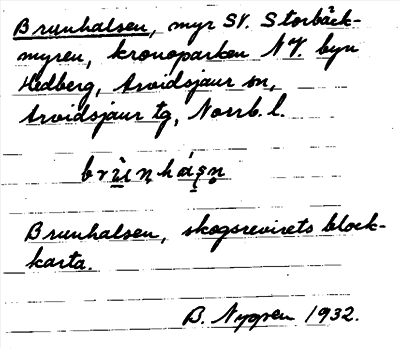 Brunhalsen, myr SV. Storbäck-
myren, kronoparken NV. byn
Hedberg, Arvidsjaur sn,
Arvidsjaur tg, Norrb. l.
Brunhalsen, skogsrevirets block-
karta.
B. Nygren 1932.